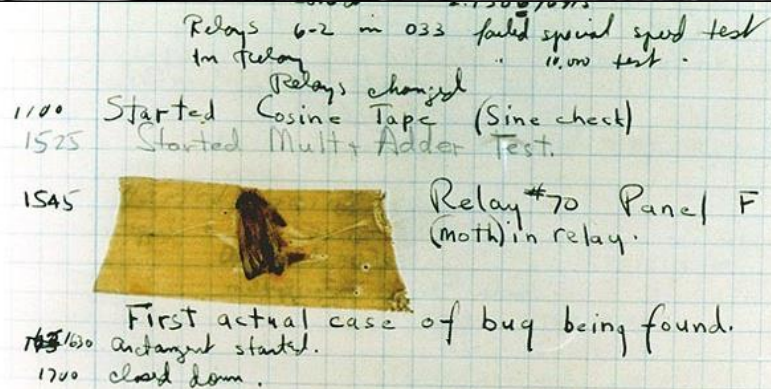 Relays 6-2 in 033 failed special speed test
In Relay " 10.000 test.
Relays changed
1100 Started Cosine Tape (Sine check)
1525 Started Mult + Adder Test.
1545 Relay #70 Panel F
(moth) in relay.
First actual case of bug being found.
1630 arctangent started.
1700 closed down.